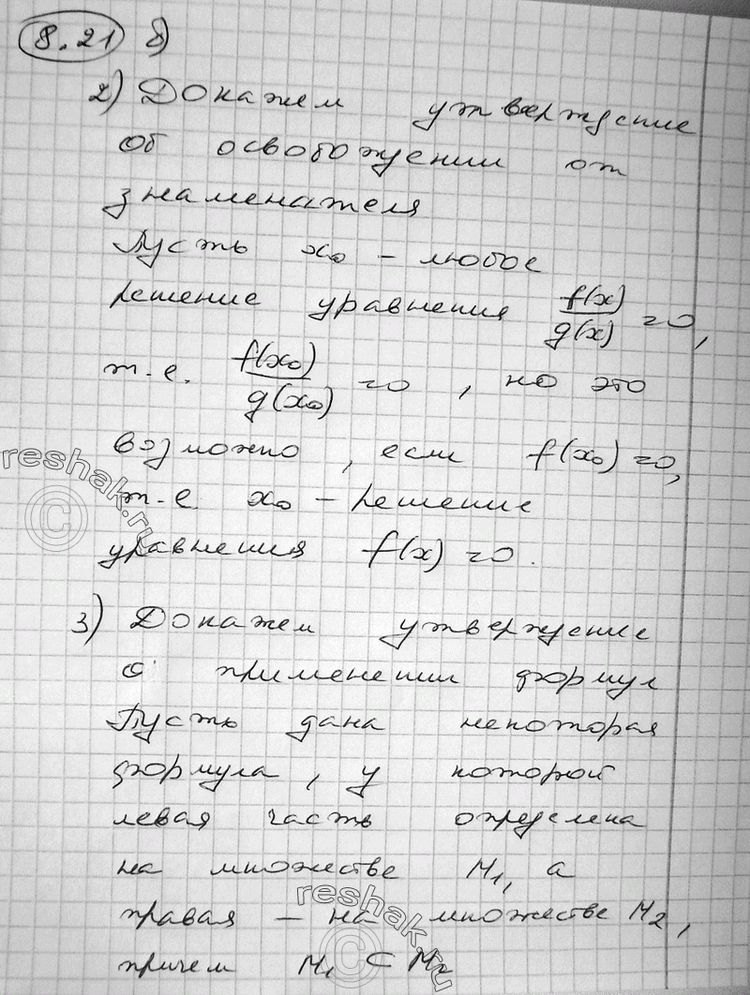 8.21 б)
2) Докажем утверждение
об освобождении от
знаменателя
Пусть x₀ – любое
решение уравнения f(x)/g(x) = 0,
т.е. f(x₀)/g(x₀) = 0, но это
возможно, если f(x₀) = 0,
т.е. x₀ – решение
уравнения f(x) = 0.
3) Докажем утверждение
о применении формул
Пусть дана некоторая
формула, у которой
левая часть определена
на множестве М₁, а
правая – на множестве М₂,
причем М₁ ⊂ М₂
reshak.ru
reshak.ru